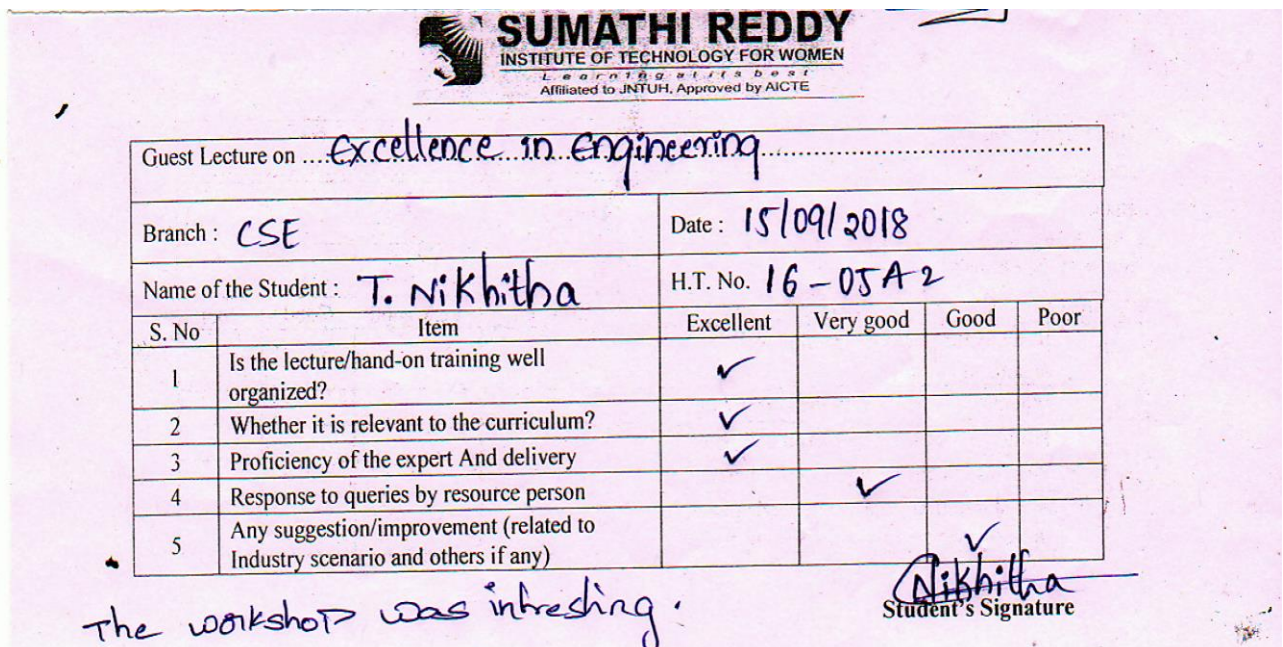 SUMATHI REDDY
INSTITUTE OF TECHNOLOGY FOR WOMEN
Learning at its best
Affiliated to JNTUH, Approved by AICTE
Guest Lecture on ....Excellence...in...Engineering..................................................
Branch : CSE Date : 15/09/2018
Name of the Student : T. Nikhitha H.T. No. 16-05A2
S. No Item Excellent Very good Good Poor
1 Is the lecture/hand-on training well
organized? ✓
2 Whether it is relevant to the curriculum? ✓
3 Proficiency of the expert And delivery ✓
4 Response to queries by resource person ✓
5 Any suggestion/improvement (related to
Industry scenario and others if any) ✓
Nikhitha
Student's Signature
The workshop was intresting.